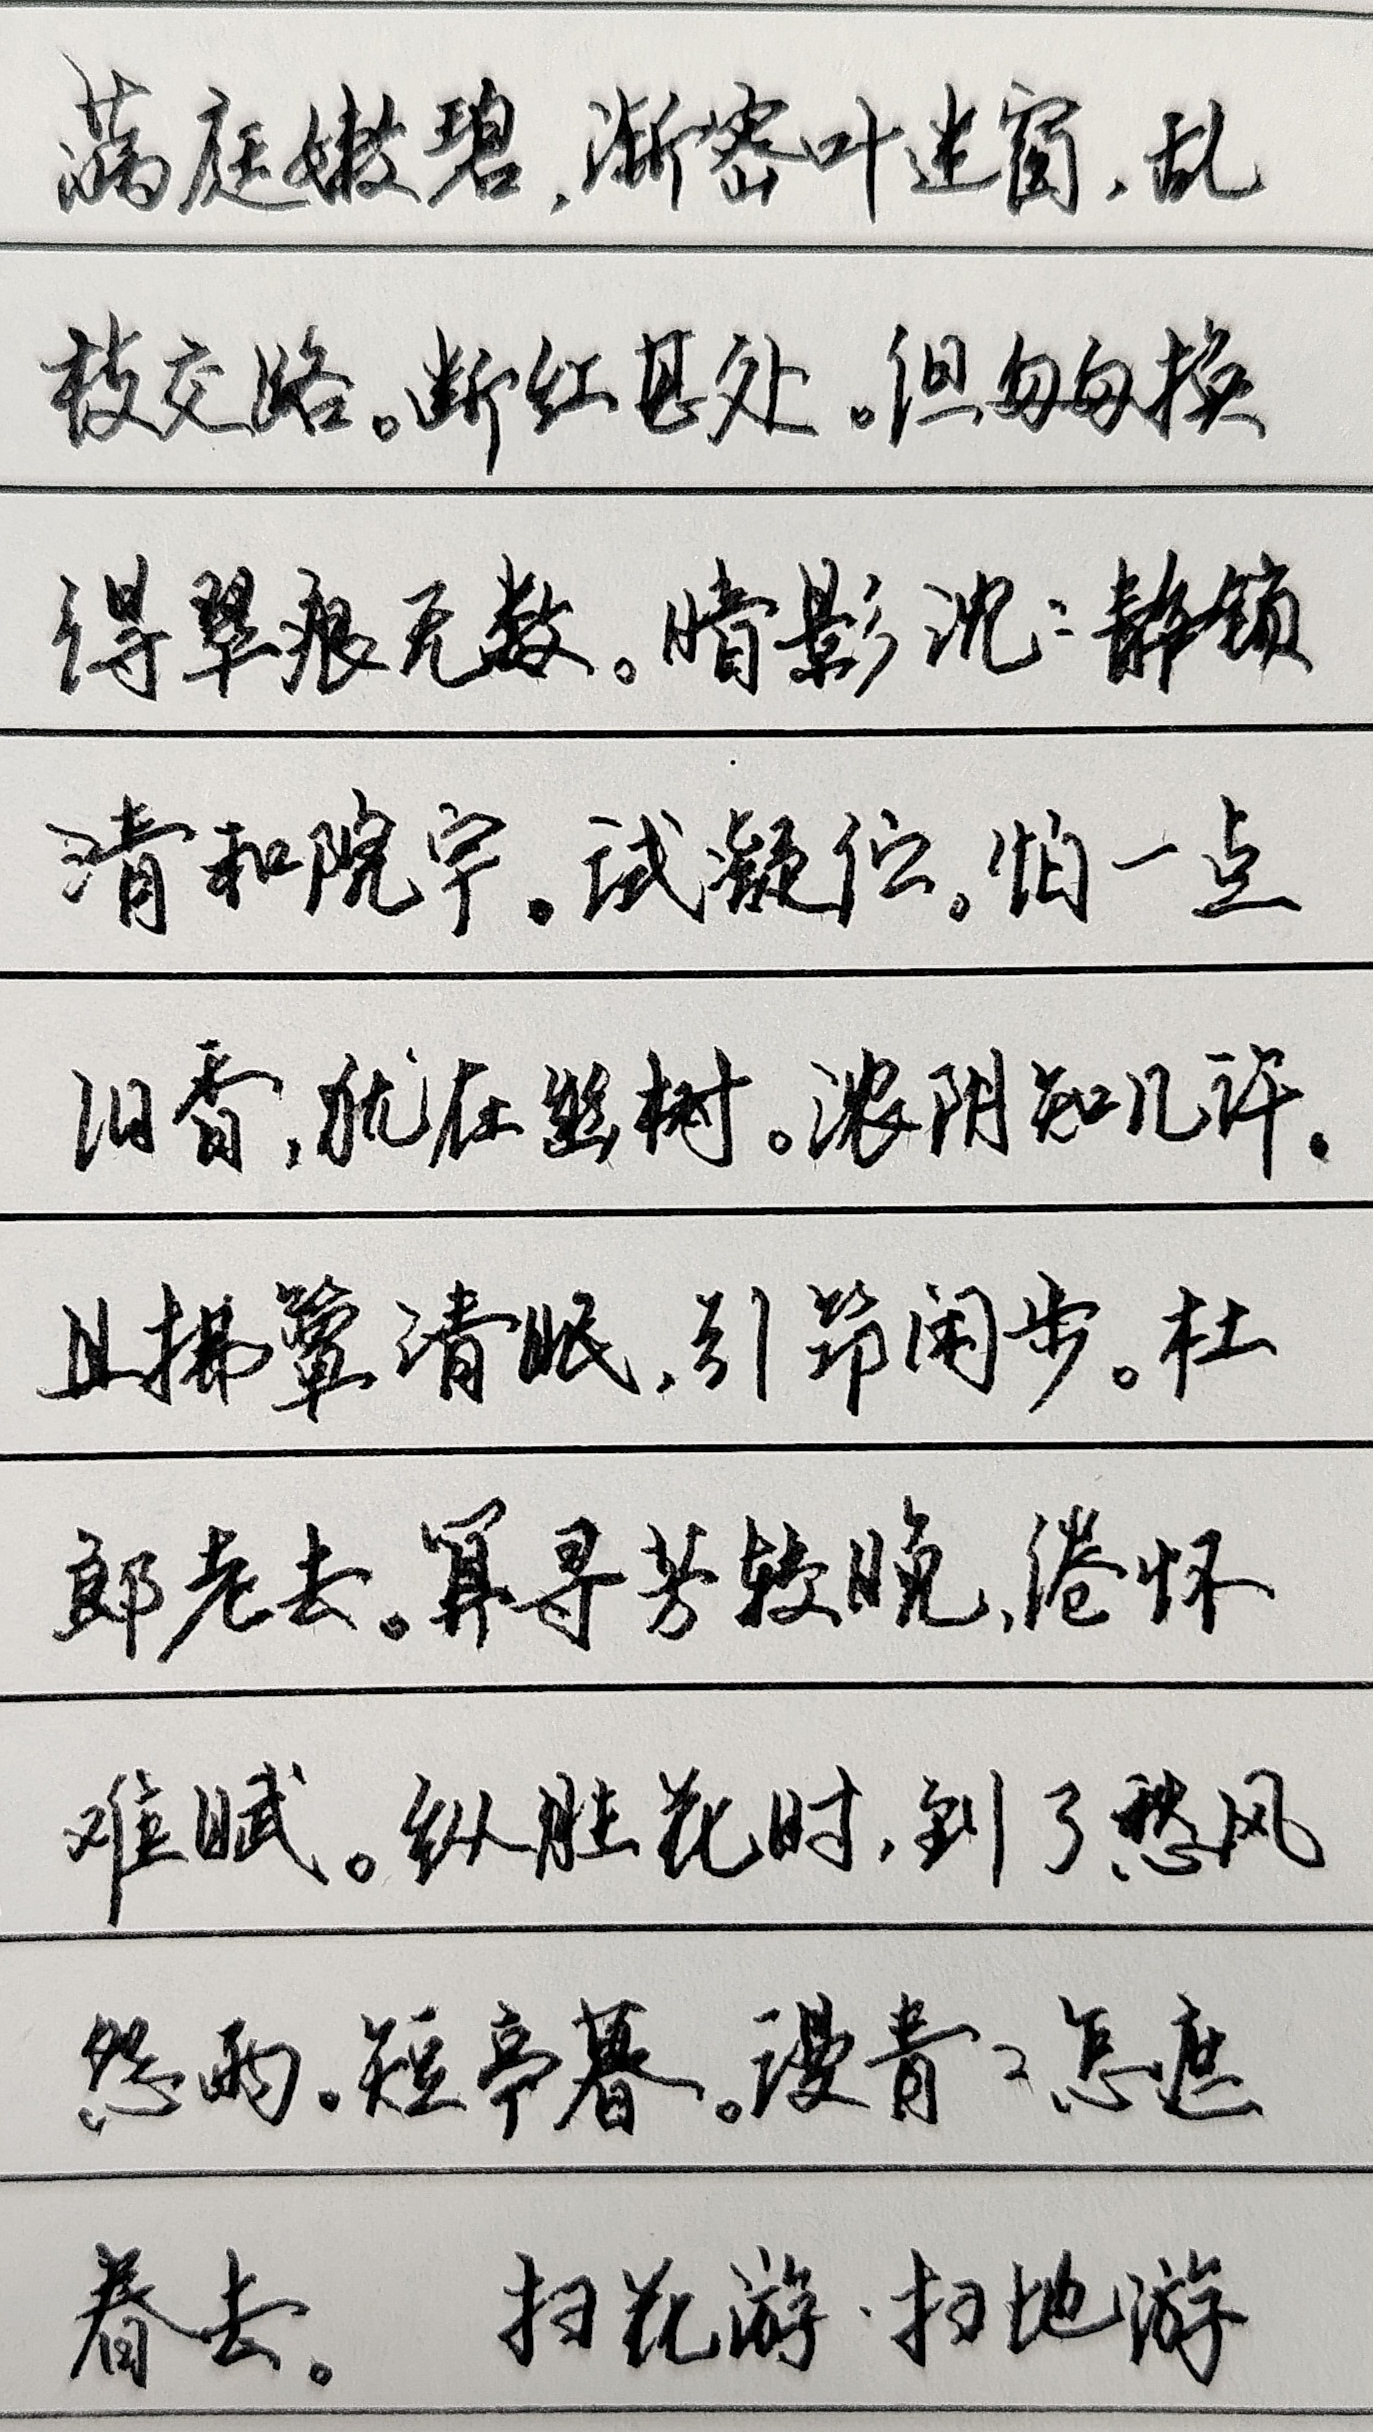 满庭嫩碧，渐密叶迷窗，乱
枝交路。断红甚处。但匆匆换
得翠痕无数。暗影沈〻静锁
清和院宇。试凝伫。怕一点
旧香，犹在幽树。浓阴知几许。
且拂簟清眠，引筇闲步。杜
郎老去。算寻芳较晚，倦怀
难赋。纵胜花时，到了愁风
怨雨。短亭暮。谩青〻怎遮
春去。 扫花游·扫地游